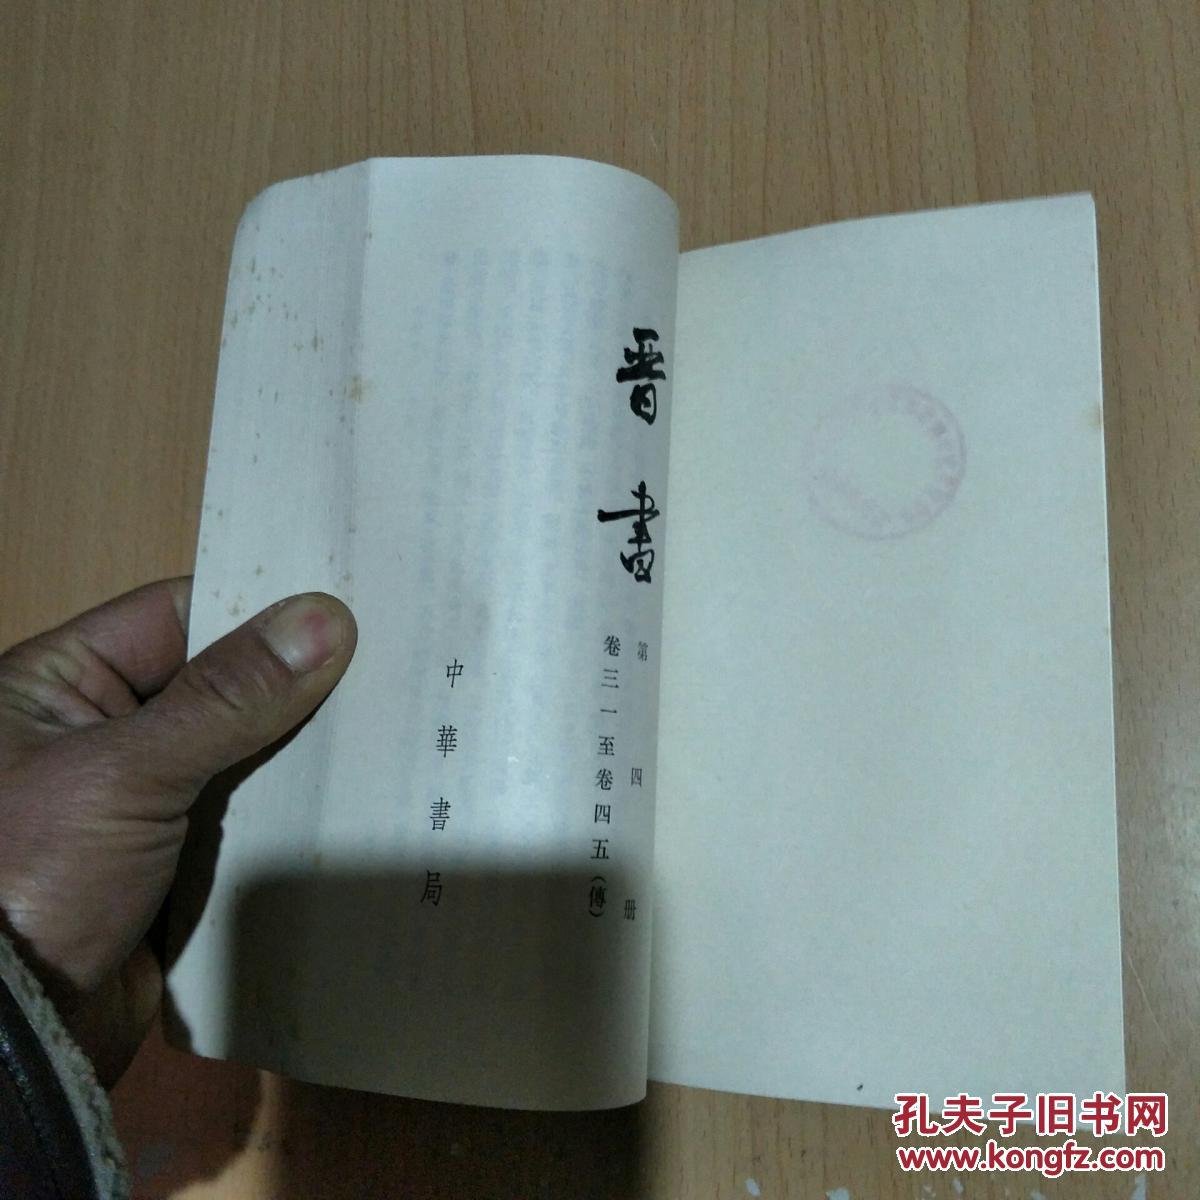 晋書
第四册
卷三一至卷四五(傳)
中華書局
孔夫子旧书网
www.kongfz.com